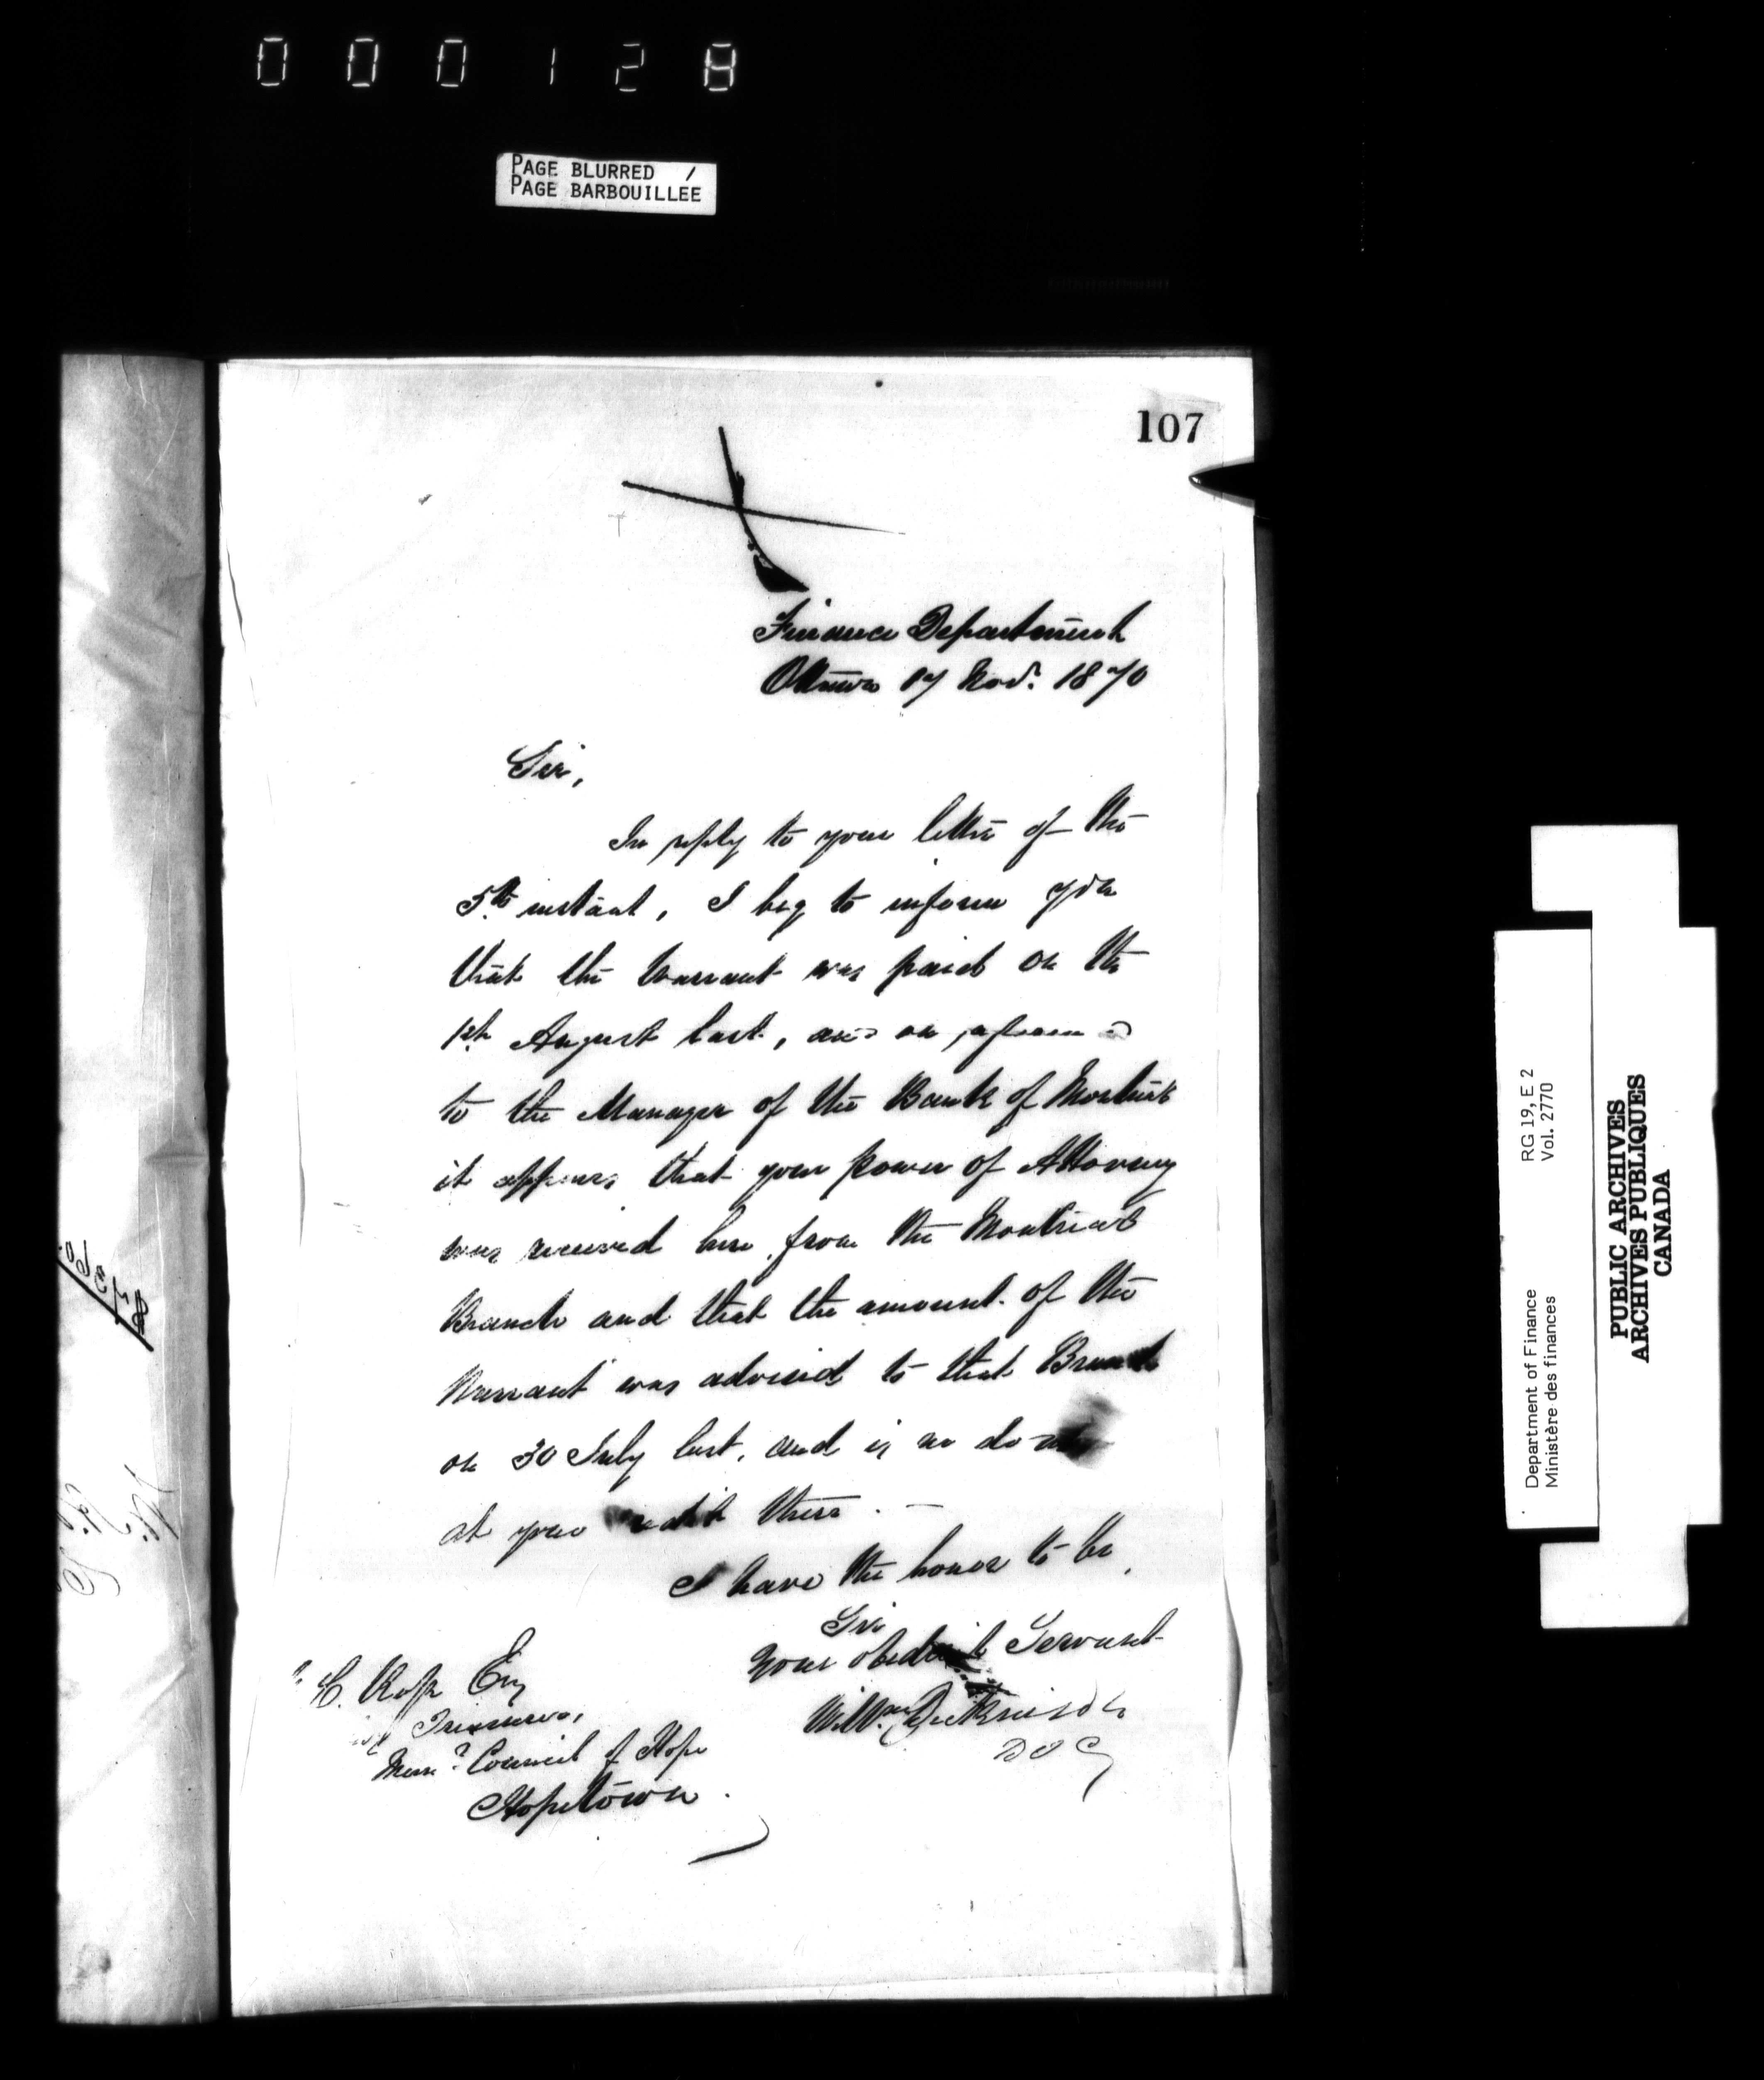 000128
PAGE BLURRED /
PAGE BARBOUILLÉE
107
Finance Department
Ottawa 17 Nov.r 1870
Sir,
In reply to your letter of the
5th instant, I beg to inform you
that the Warrant was paid on the
1st August last, and on reference
to the Manager of the Bank of Montreal
it appears that your power of Attorney
was received here from the Montreal
Branch and that the amount of the
Warrant was advised to that Branch
on 30 July last, and is no doubt
at your credit there. —
I have the honor to be,
Sir
Your obedient Servant
Willm. Dickinson
H. Ross Esq
Treasurer,
Council of Hope
Hopetown.
Department of Finance RG 19, E 2
Ministère des finances Vol. 2770
PUBLIC ARCHIVES
ARCHIVES PUBLIQUES
CANADA